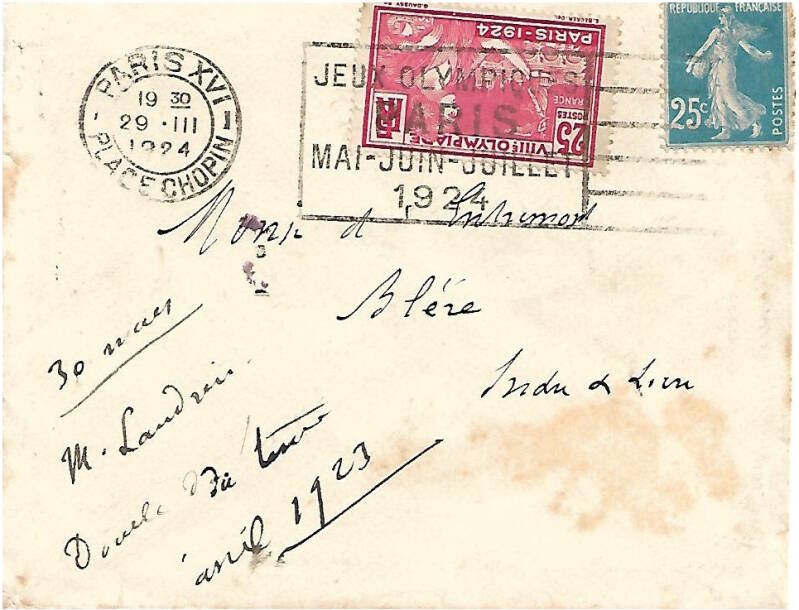 PARIS XVI
19 30
29 · III
1924
PLACE CHOPIN
JEUX OLYMPIQUES
PARIS
MAI-JUIN-JUILLET
1924
PARIS-1924
POSTES
FRANCE
25
VIIIE OLYMPIADE
RÉPUBLIQUE FRANÇAISE
25c
POSTES
d'
Bléré
Indre & Loire
30 mars
M. Landrin
Double
avril 1923